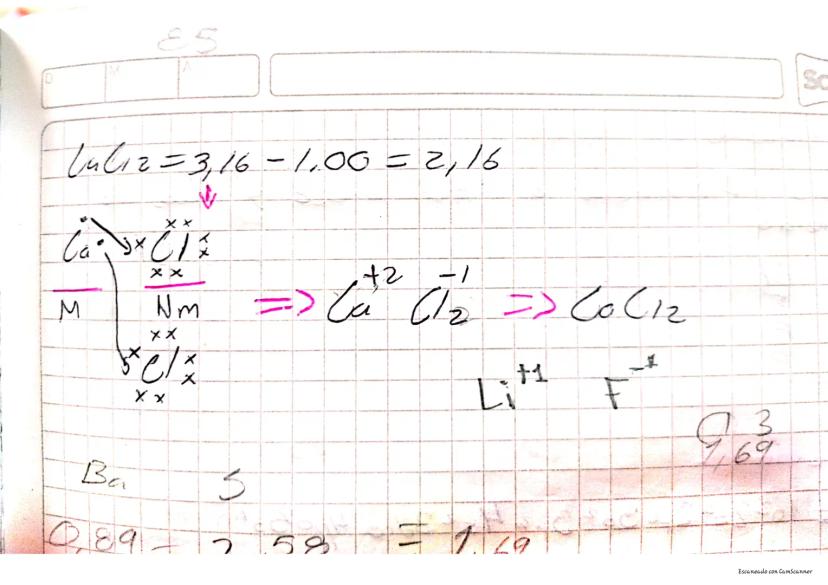 D M A
Sc
CaCl2 = 3,16 - 1.00 = 2,16
Ca Cl
M Nm
Cl
=> Ca+2 Cl2-1 => CaCl2
Li+1 F-1
3
1,69
Ba S
0,89 - 2,58 = 1,69
Escaneado con CamScanner